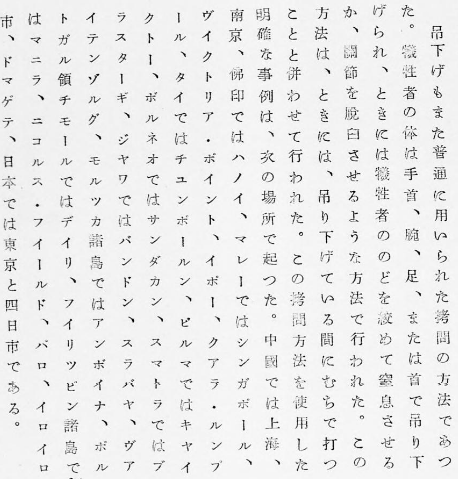 吊下げもまた普通に用いられた拷問の方法であつ
た。犠牲者の体は手首、腕、足、または首で吊り下
げられ、ときには犠牲者ののどを絞めて窒息させる
か、關節を脱臼させるような方法で行われた。この
方法は、ときには、吊り下げている間にむちで打つ
ことと併わせて行われた。この拷問方法を使用した
明確な事例は、次の場所で起つた。中國では上海、
南京、佛印ではハノイ、マレーではシンガポール、
ヴイクトリア・ポイント、イポー、クアラ・ルンプ
ール、タイではチユンポールン、ビルマではキヤイ
クトー、ボルネオではサンダカン、スマトラではブ
ラスターギ、ジヤワではバンドン、スラバヤ、ヴア
イテンゾルグ、モルツカ諸島ではアンボイナ、ポル
トガル領チモールではデイリ、フイリツピン諸島で
はマニラ、ニコルス・フイールド、パロ、イロイロ
市、ドマゲテ、日本では東京と四日市である。